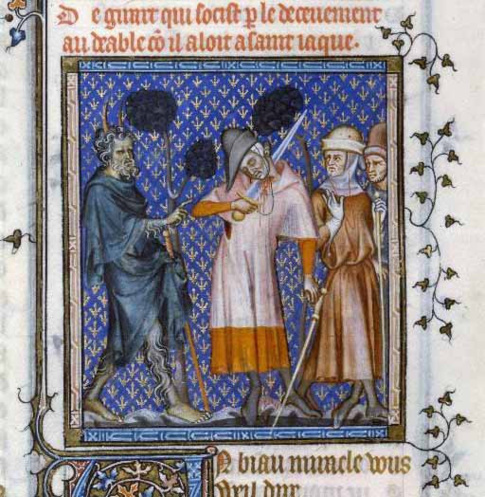 De girart qui socist p le deceuement
au deable cõ il aloit a saint iaque.
N biau miracle vous